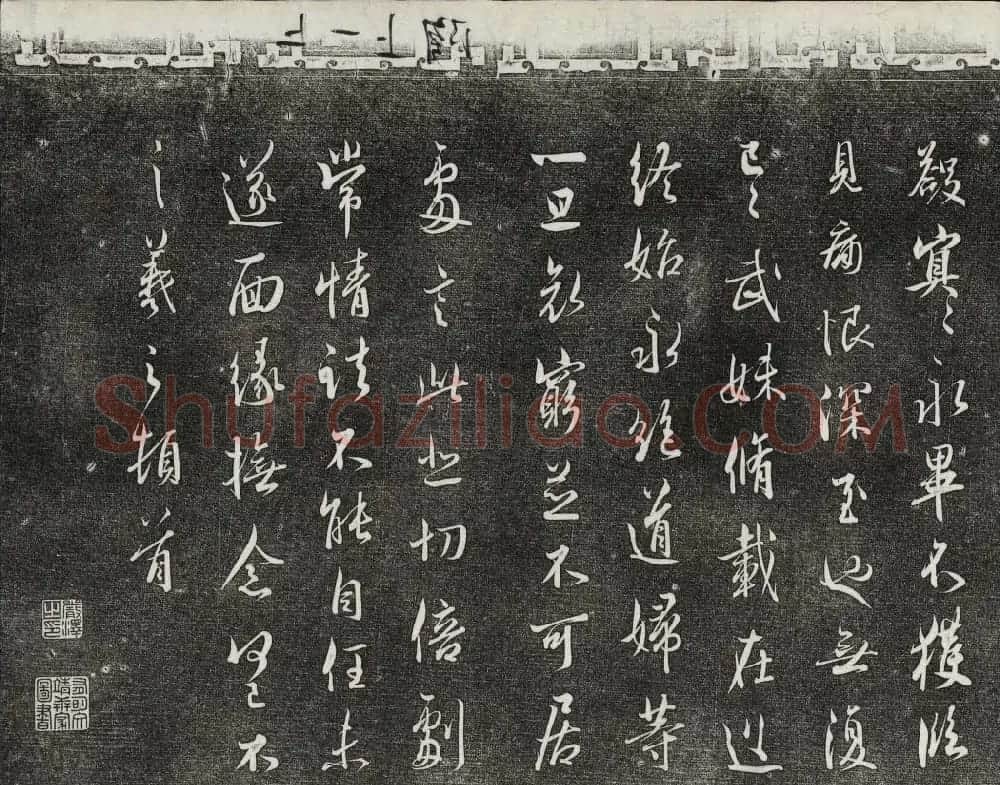 冥〻永畢不獲臨
見痛恨深至也無復
已〻武妹脩載在
終始永絕道婦等
一旦哀窮並不可居
處言此悲切倍劇
常情諸不能自任未
遂面緣撫念何已不
羲之頓首
Shufaziliao.COM